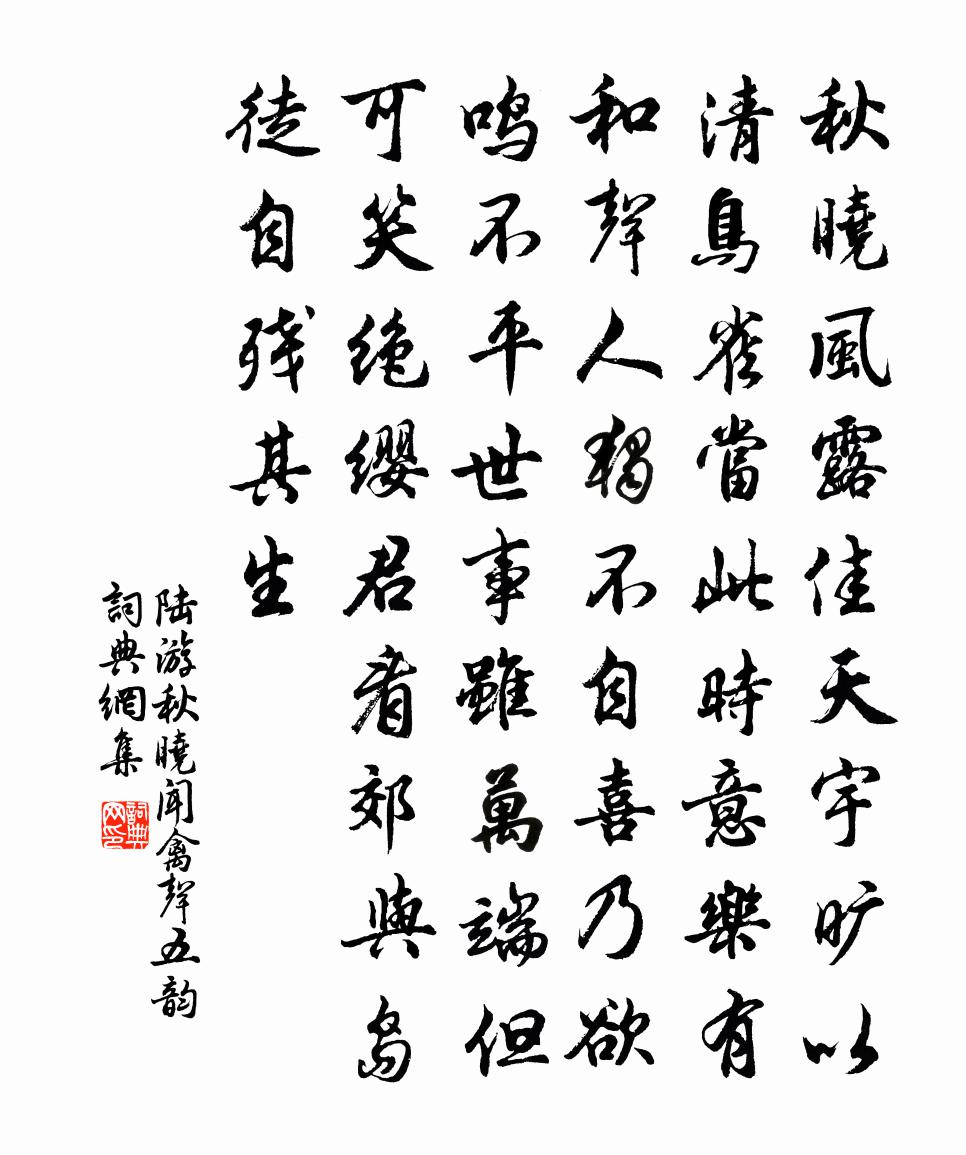 秋曉風露佳天宇旷以
清鳥雀當此時意樂有
和聲人獨不自喜乃欲
鸣不平世事雖萬端但
可笑绝缨君看郊與島
徒自残其生
陆游秋曉闻禽聲五韵
詞典網集
詞典网印